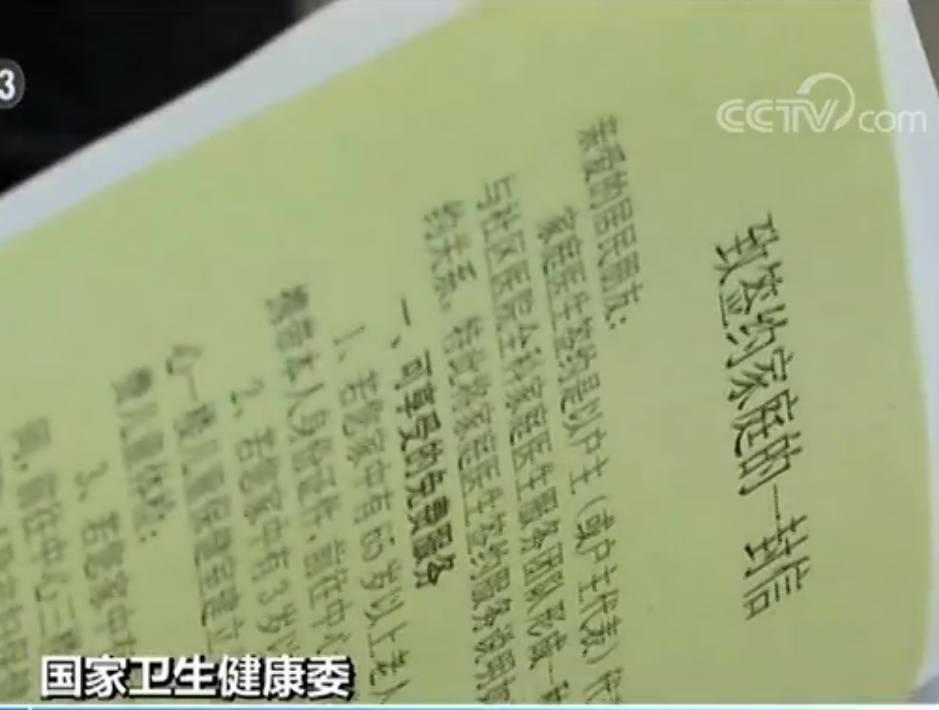 3
CCTV.com
致签约家庭的一封信
亲爱的居民朋友：
家庭医生签约是以户主（或户主代表）代
与社区医院全科家庭医生服务团队形成一种
约关系。
一、可享受的免费服务
1、若您家中有65岁以上老人
携带本人身份证件，前往中心
2、若您家中有3岁以
心一楼儿童保健室建立
童儿童体检；
3、若您家中
间，前往中心三楼
国家卫生健康委